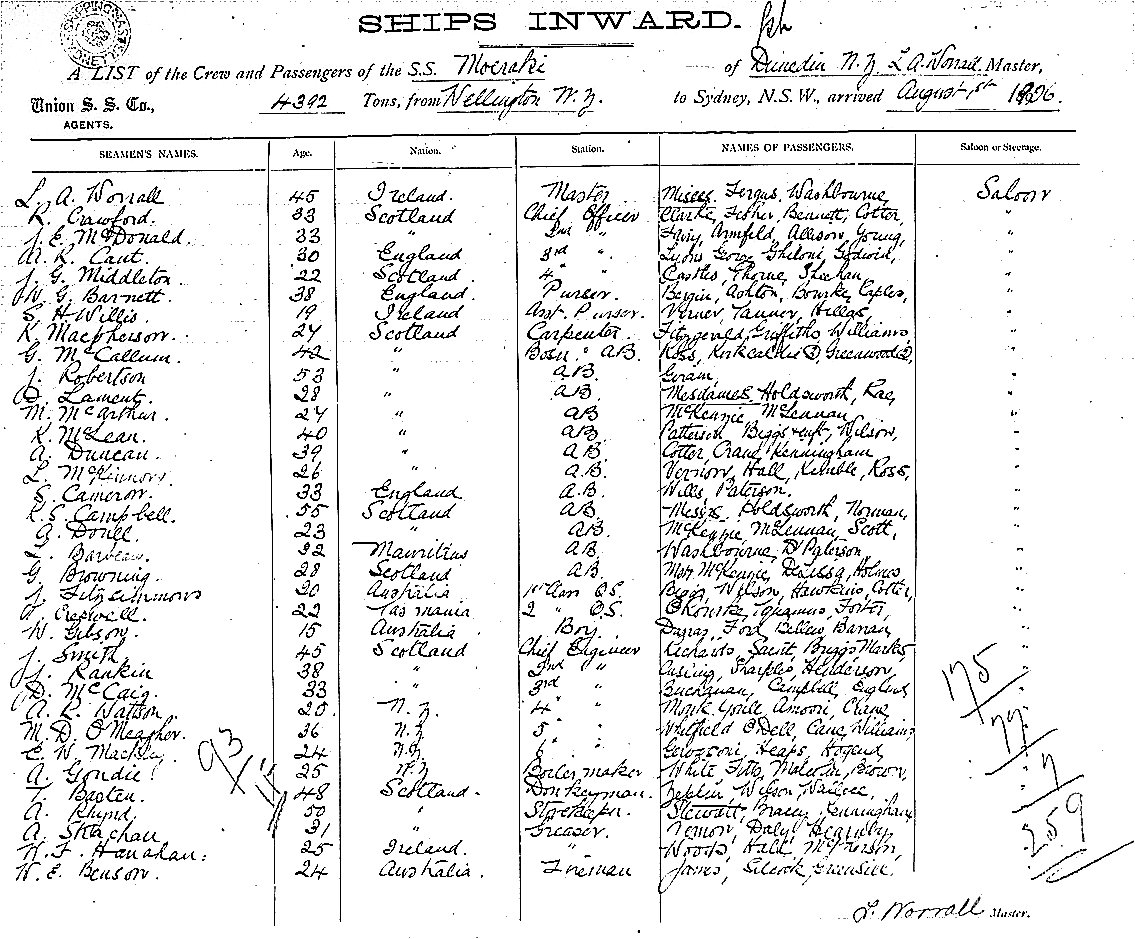 SHIPS INWARD.
A LIST of the Crew and Passengers of the S.S. Moeraki of Dunedin N.Z. L A. Worrall Master,
Union S. S. Co., 4392 Tons, from Wellington N.Z. to Sydney, N.S.W., arrived August 1st 1906.
AGENTS.
SEAMEN'S NAMES. Age. Nation. Station. NAMES OF PASSENGERS. Saloon or Steerage.
L. A. Worrall 45 Ireland. Master Misses Fergus, Washbourne, Saloon
R. Crawford. 33 Scotland Chief Officer Clarke, Fisher, Bennett, Cotter "
J. E. McDonald. 33 " 2nd " Armfeld, Allison, Young, "
30 England 3rd " Lyons "
J. G. Middleton 22 Scotland 4 " Castles, Thorne, Sheehan "
W. G. Barnett. 38 England. Purser. Bergin, Ashton, Bourke, "
S. H Willis. 19 Ireland Asst. Purser. Verner, Tanner, Hillas, "
K. Macpherson. 24 Scotland Carpenter Fitzgerald, Griffiths, Williams, "
G. McCallum. 42 " Bosn & AB. Ross, "
J. Robertson 53 " AB. "
D. Lamont. 28 " AB. Mesdames Holdsworth, Rae, "
M. McArthur. 24 " AB McKenzie McLennan "
K. McLean. 40 " AB. Patterson Biggs & inft, Wilson, "
A. Duncan. 39 " A.B. Cotter, Crane, Kenningham "
L. McKinnon 26 " A.B. Vernon, Hall, Kimble, Ross, "
S. Cameron. 33 England A.B. Wills, Paterson. "
R. S. Campbell. 55 Scotland AB. Messrs Holdsworth, Norman, "
A. 23 " AB. McKenzie, McLennan, Scott, "
L. 22 Mauritius AB. Washbourne, D Paterson "
G. Browning. 28 Scotland AB. McKenzie, Holmes "
J. Fitzsimmons 20 Australia 1st Class O.S. Biggs, Wilson, Hawkins, Cotter, "
22 Tasmania 2 " O.S. O'Rourke, Foster, "
W. Gibson. 15 Australia Boy. Ford "
J. Smith. 45 Scotland Chief Engineer Richards, Saint, Briggs Marks, "
J. Rankin 38 " 2nd " Sharples, Henderson, "
D. McCaig. 33 " 3rd " Buchanan, Campbell, England
A. R. Watson 25 N.Z. 4 " Monk Crane
M. D. O'Meagher. 36 N.Z 5 " Whitfield O'Dell, Cane, Williams,
E. W. Mackley 24 N.Z 6 " Heaps,
A. Gondie 25 N.Z Boilermaker White Malcolm, Brown,
T. Basten. 48 Scotland. Donkeyman. Wilson, Wallace,
A. Rhynd 50 " Storekeeper Stewart, Bracey, Kenningham,
A. Strachan 31 " Greaser. Vernon, Daly,
W. F. Hanahan. 25 Ireland. " Woods, Hall, McPherson,
W. E. Benson. 24 Australia. Fireman James, Silcock, Greensill.
93
175
77
7
259
L. Worrall Master.